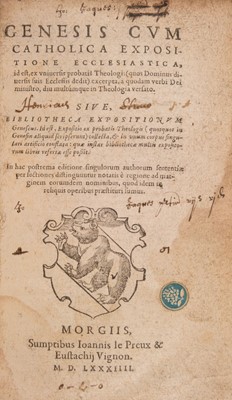 GENESIS CVM
CATHOLICA EXPOSI-
TIONE ECCLESIASTICA,
id est, ex vniuersis probatis Theologis (quos Dominus di-
uersis suis Ecclesiis dedit) excerpta, à quodam verbi Dei
ministro, diu multúmque in Theologia versato.
SIVE,
BIBLIOTHECA EXPOSITIONVM
Geneseos: id est, Expositio ex probatis Theologis (quotquot in
Genesin aliquid scripserunt) collecta, & in vnum corpus singu-
lari artificio conflata: quæ instar bibliothecæ multis exposito-
ribus refertæ esse possit.
In hac postrema editione singulorum authorum sententiæ
per sectiones distinguuntur notatis è regione ad mar-
ginem eorumdem nominibus, quod idem in
reliquis operibus præstituri sumus.
MORGIIS,
Sumptibus Ioannis le Preux &
Eustachij Vignon.
M. D. LXXXIIII.